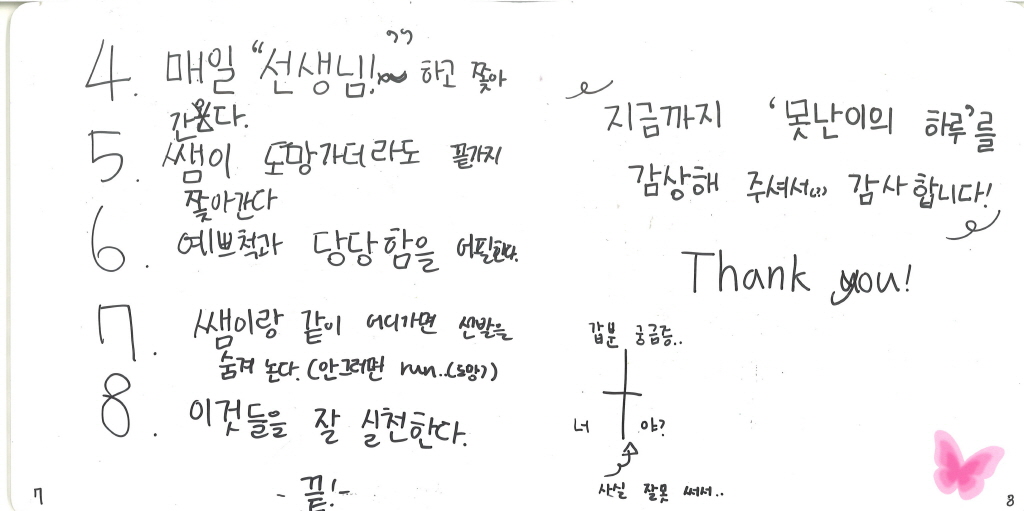 4. 매일 “선생님!~” 하고 쫓아
간다.
5. 쌤이 도망가더라도 끝가지
쫓아간다
6. 예쁘척과 당당함을 어필한다.
7. 쌤이랑 같이 어디가면 신발을
숨겨 논다. (안그러면 run..(도망))
8. 이것들을 잘 실천한다.
- 끝! -
7
지금까지 ‘못난이의 하루’를
감상해 주셔서... 감사합니다!
Thank you!
갑분 궁금증..
너 야?
사실 잘못 써서..
8